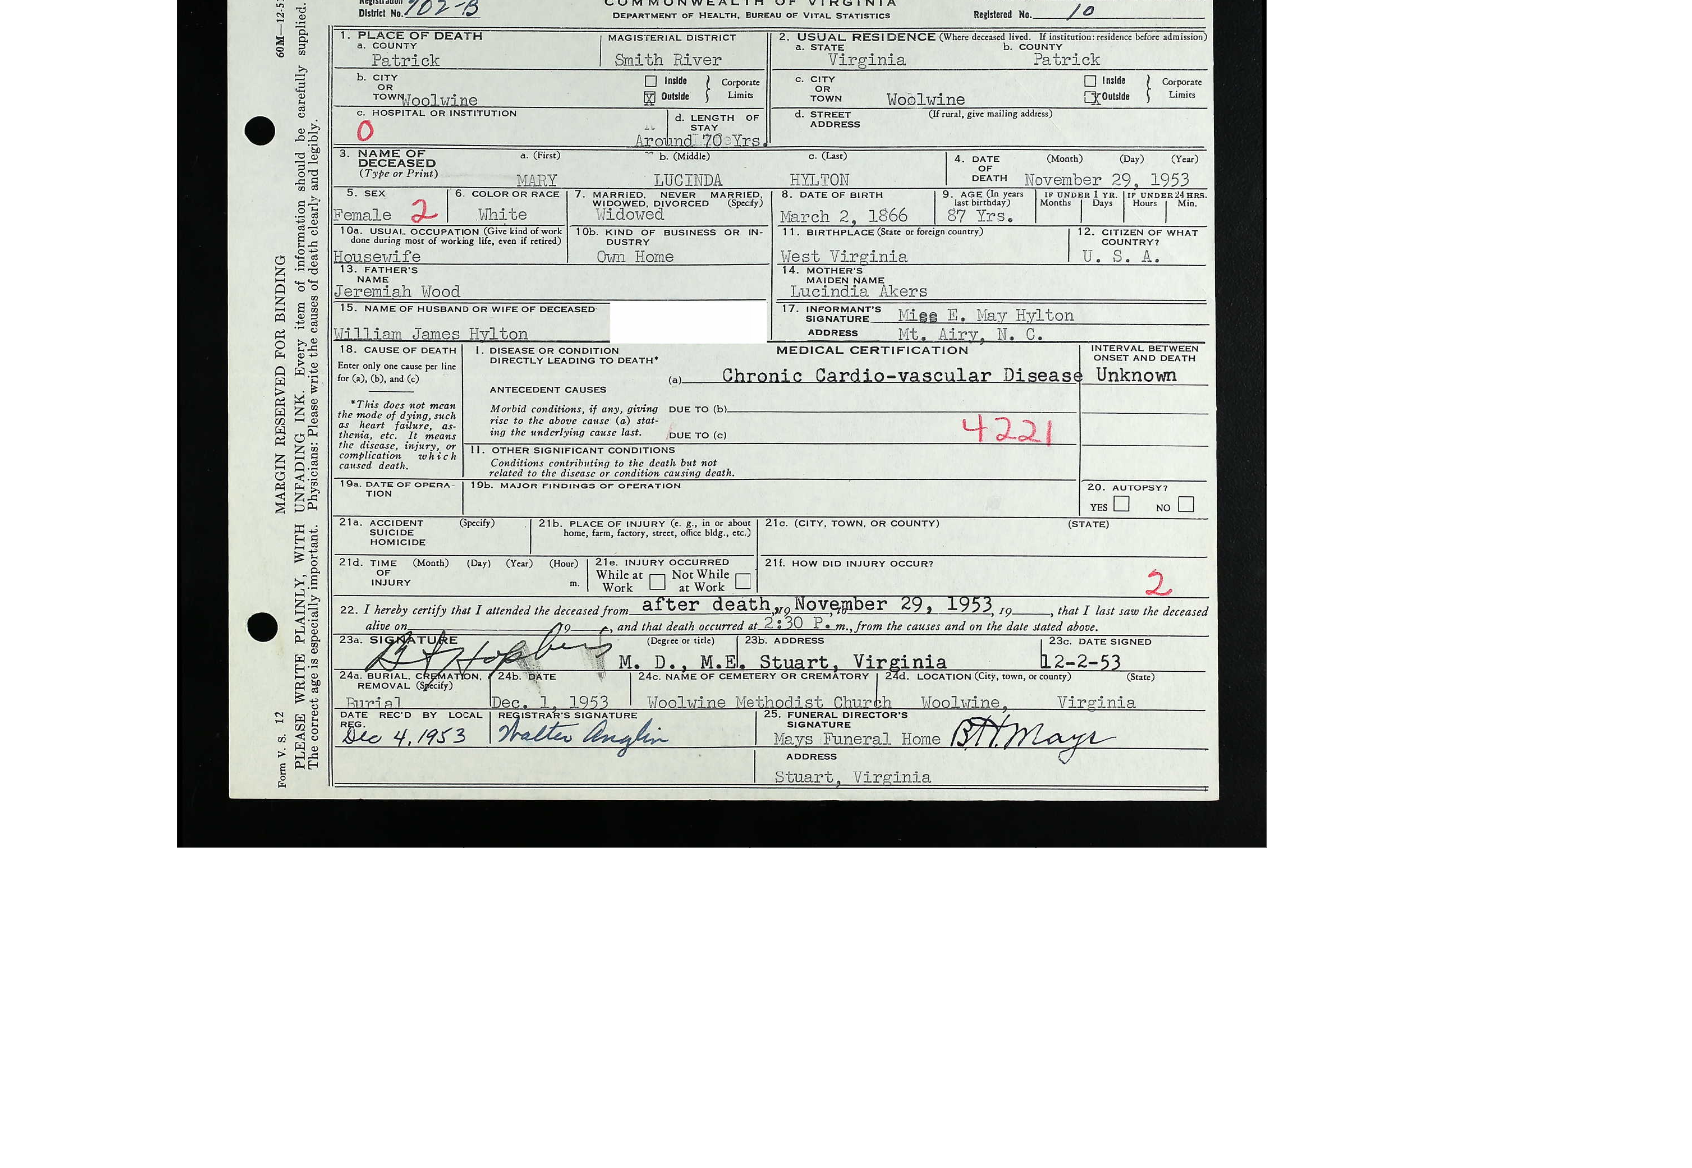 Registration COMMONWEALTH OF VIRGINIA
District No. 702-B DEPARTMENT OF HEALTH, BUREAU OF VITAL STATISTICS Registered No. 10
1. PLACE OF DEATH MAGISTERIAL DISTRICT 2. USUAL RESIDENCE (Where deceased lived. If institution: residence before admission)
a. COUNTY a. STATE b. COUNTY
Patrick Smith River Virginia Patrick
b. CITY OR TOWN Woolwine Inside X Outside } Corporate Limits c. CITY OR TOWN Woolwine Inside X Outside } Corporate Limits
c. HOSPITAL OR INSTITUTION d. LENGTH OF STAY d. STREET ADDRESS (If rural, give mailing address)
0 Around 70 Yrs.
3. NAME OF DECEASED a. (First) b. (Middle) c. (Last) 4. DATE OF DEATH (Month) (Day) (Year)
(Type or Print) MARY LUCINDA HYLTON November 29, 1953
5. SEX 6. COLOR OR RACE 7. MARRIED, NEVER MARRIED, WIDOWED, DIVORCED (Specify) 8. DATE OF BIRTH 9. AGE (In years last birthday) IF UNDER 1 YR. Months Days IF UNDER 24 HRS. Hours Min.
Female 2 White Widowed March 2, 1866 87 Yrs.
10a. USUAL OCCUPATION (Give kind of work done during most of working life, even if retired) 10b. KIND OF BUSINESS OR INDUSTRY 11. BIRTHPLACE (State or foreign country) 12. CITIZEN OF WHAT COUNTRY?
Housewife Own Home West Virginia U. S. A.
13. FATHER'S NAME 14. MOTHER'S MAIDEN NAME
Jeremiah Wood Lucindia Akers
15. NAME OF HUSBAND OR WIFE OF DECEASED 17. INFORMANT'S SIGNATURE Miss E. May Hylton
William James Hylton ADDRESS Mt. Airy, N. C.
18. CAUSE OF DEATH I. DISEASE OR CONDITION DIRECTLY LEADING TO DEATH* MEDICAL CERTIFICATION INTERVAL BETWEEN ONSET AND DEATH
Enter only one cause per line for (a), (b), and (c)
(a) Chronic Cardio-vascular Disease Unknown
ANTECEDENT CAUSES
*This does not mean the mode of dying, such as heart failure, asthenia, etc. It means the disease, injury, or complication which caused death.
Morbid conditions, if any, giving rise to the above cause (a) stating the underlying cause last.
DUE TO (b)
DUE TO (c)
4221
II. OTHER SIGNIFICANT CONDITIONS
Conditions contributing to the death but not related to the disease or condition causing death.
19a. DATE OF OPERATION 19b. MAJOR FINDINGS OF OPERATION 20. AUTOPSY?
YES NO
21a. ACCIDENT SUICIDE HOMICIDE (Specify) 21b. PLACE OF INJURY (e. g., in or about home, farm, factory, street, office bldg., etc.) 21c. (CITY, TOWN, OR COUNTY) (STATE)
21d. TIME OF INJURY (Month) (Day) (Year) (Hour) m. 21e. INJURY OCCURRED While at Work Not While at Work 21f. HOW DID INJURY OCCUR?
2
22. I hereby certify that I attended the deceased from after death, 19 November 29, 1953, 19 , that I last saw the deceased
alive on 19 , and that death occurred at 2:30 P. m., from the causes and on the date stated above.
23a. SIGNATURE (Degree or title) 23b. ADDRESS 23c. DATE SIGNED
M. D., M.E. Stuart, Virginia 12-2-53
24a. BURIAL, CREMATION, REMOVAL (Specify) 24b. DATE 24c. NAME OF CEMETERY OR CREMATORY 24d. LOCATION (City, town, or county) (State)
Burial Dec. 1, 1953 Woolwine Methodist Church Woolwine, Virginia
DATE REC'D BY LOCAL REG. REGISTRAR'S SIGNATURE 25. FUNERAL DIRECTOR'S SIGNATURE
Dec 4, 1953 Walter Anglin Mays Funeral Home B.H. Mays
ADDRESS
Stuart, Virginia
Form V. S. 12 60M—12-5
MARGIN RESERVED FOR BINDING
PLEASE WRITE PLAINLY, WITH UNFADING INK. Every item of information should be carefully supplied.
The correct age is especially important. Physicians: Please write the causes of death clearly and legibly.